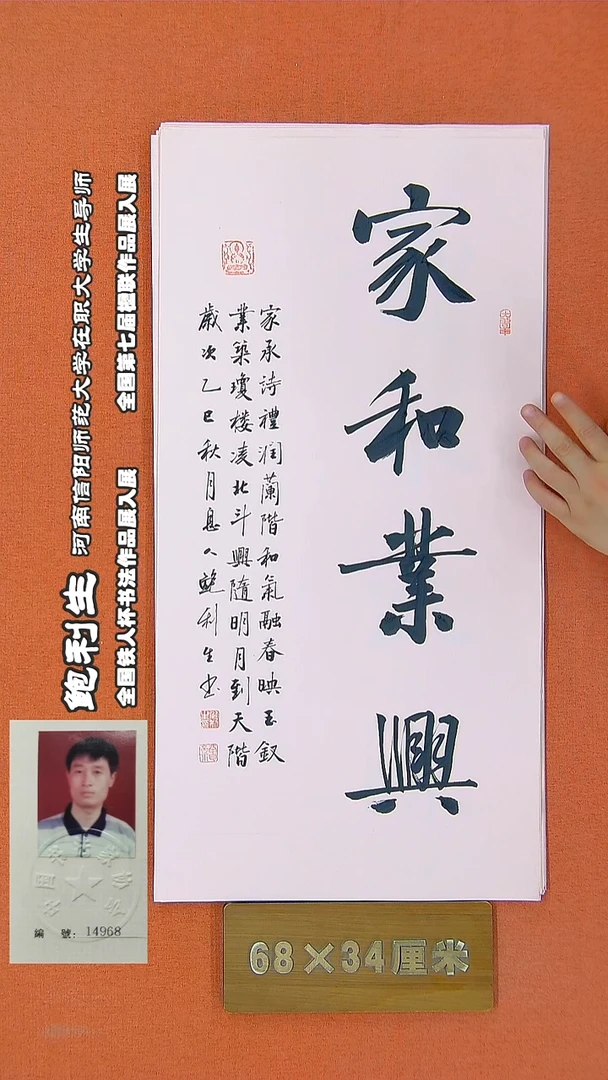 家和業興
家承詩禮潤蘭階和氣融春映玉釵
業築瓊楼凌北斗興隨明月到天階
歲次乙巳秋月息人鮑利生书
鲍利生 河南信阳师范大学在职大学生导师
全国铁人杯书法作品展入展 全国第七届楹联作品展入展
編 號: 14968
68×34厘米